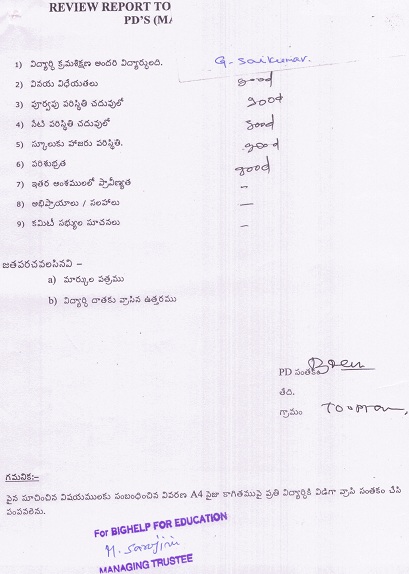 REVIEW REPORT TO
PD'S (MA
1) విద్యార్ధి క్రమశిక్షణ అందరి విద్యార్థులది. G. Saikumar.
2) వినయ విధేయతలు good
3) పూర్వపు పరిస్థితి చదువులో good
4) నేటి పరిస్థితి చదువులో good
5) స్కూలుకు హాజరు పరిస్థితి. good
6) పరిశుభ్రత good
7) ఇతర అంశములలో ప్రావీణ్యత –
8) అభిప్రాయాలు / సలహాలు –
9) కమిటీ సభ్యుల సూచనలు –
జతపరచవలసినవి –
a) మార్కుల పత్రము
b) విద్యార్ధి దాతకు వ్రాసిన ఉత్తరము
PD సంతకం
తేది.
గ్రామం Toopran,
గమనిక:–
పైన సూచించిన విషయములకు సంబంధించిన వివరణ A4 సైజు కాగితముపై ప్రతి విద్యార్ధికి విడిగా వ్రాసి సంతకం చేసి
పంపవలెను.
For BIGHELP FOR EDUCATION
M. Sarojini
MANAGING TRUSTEE